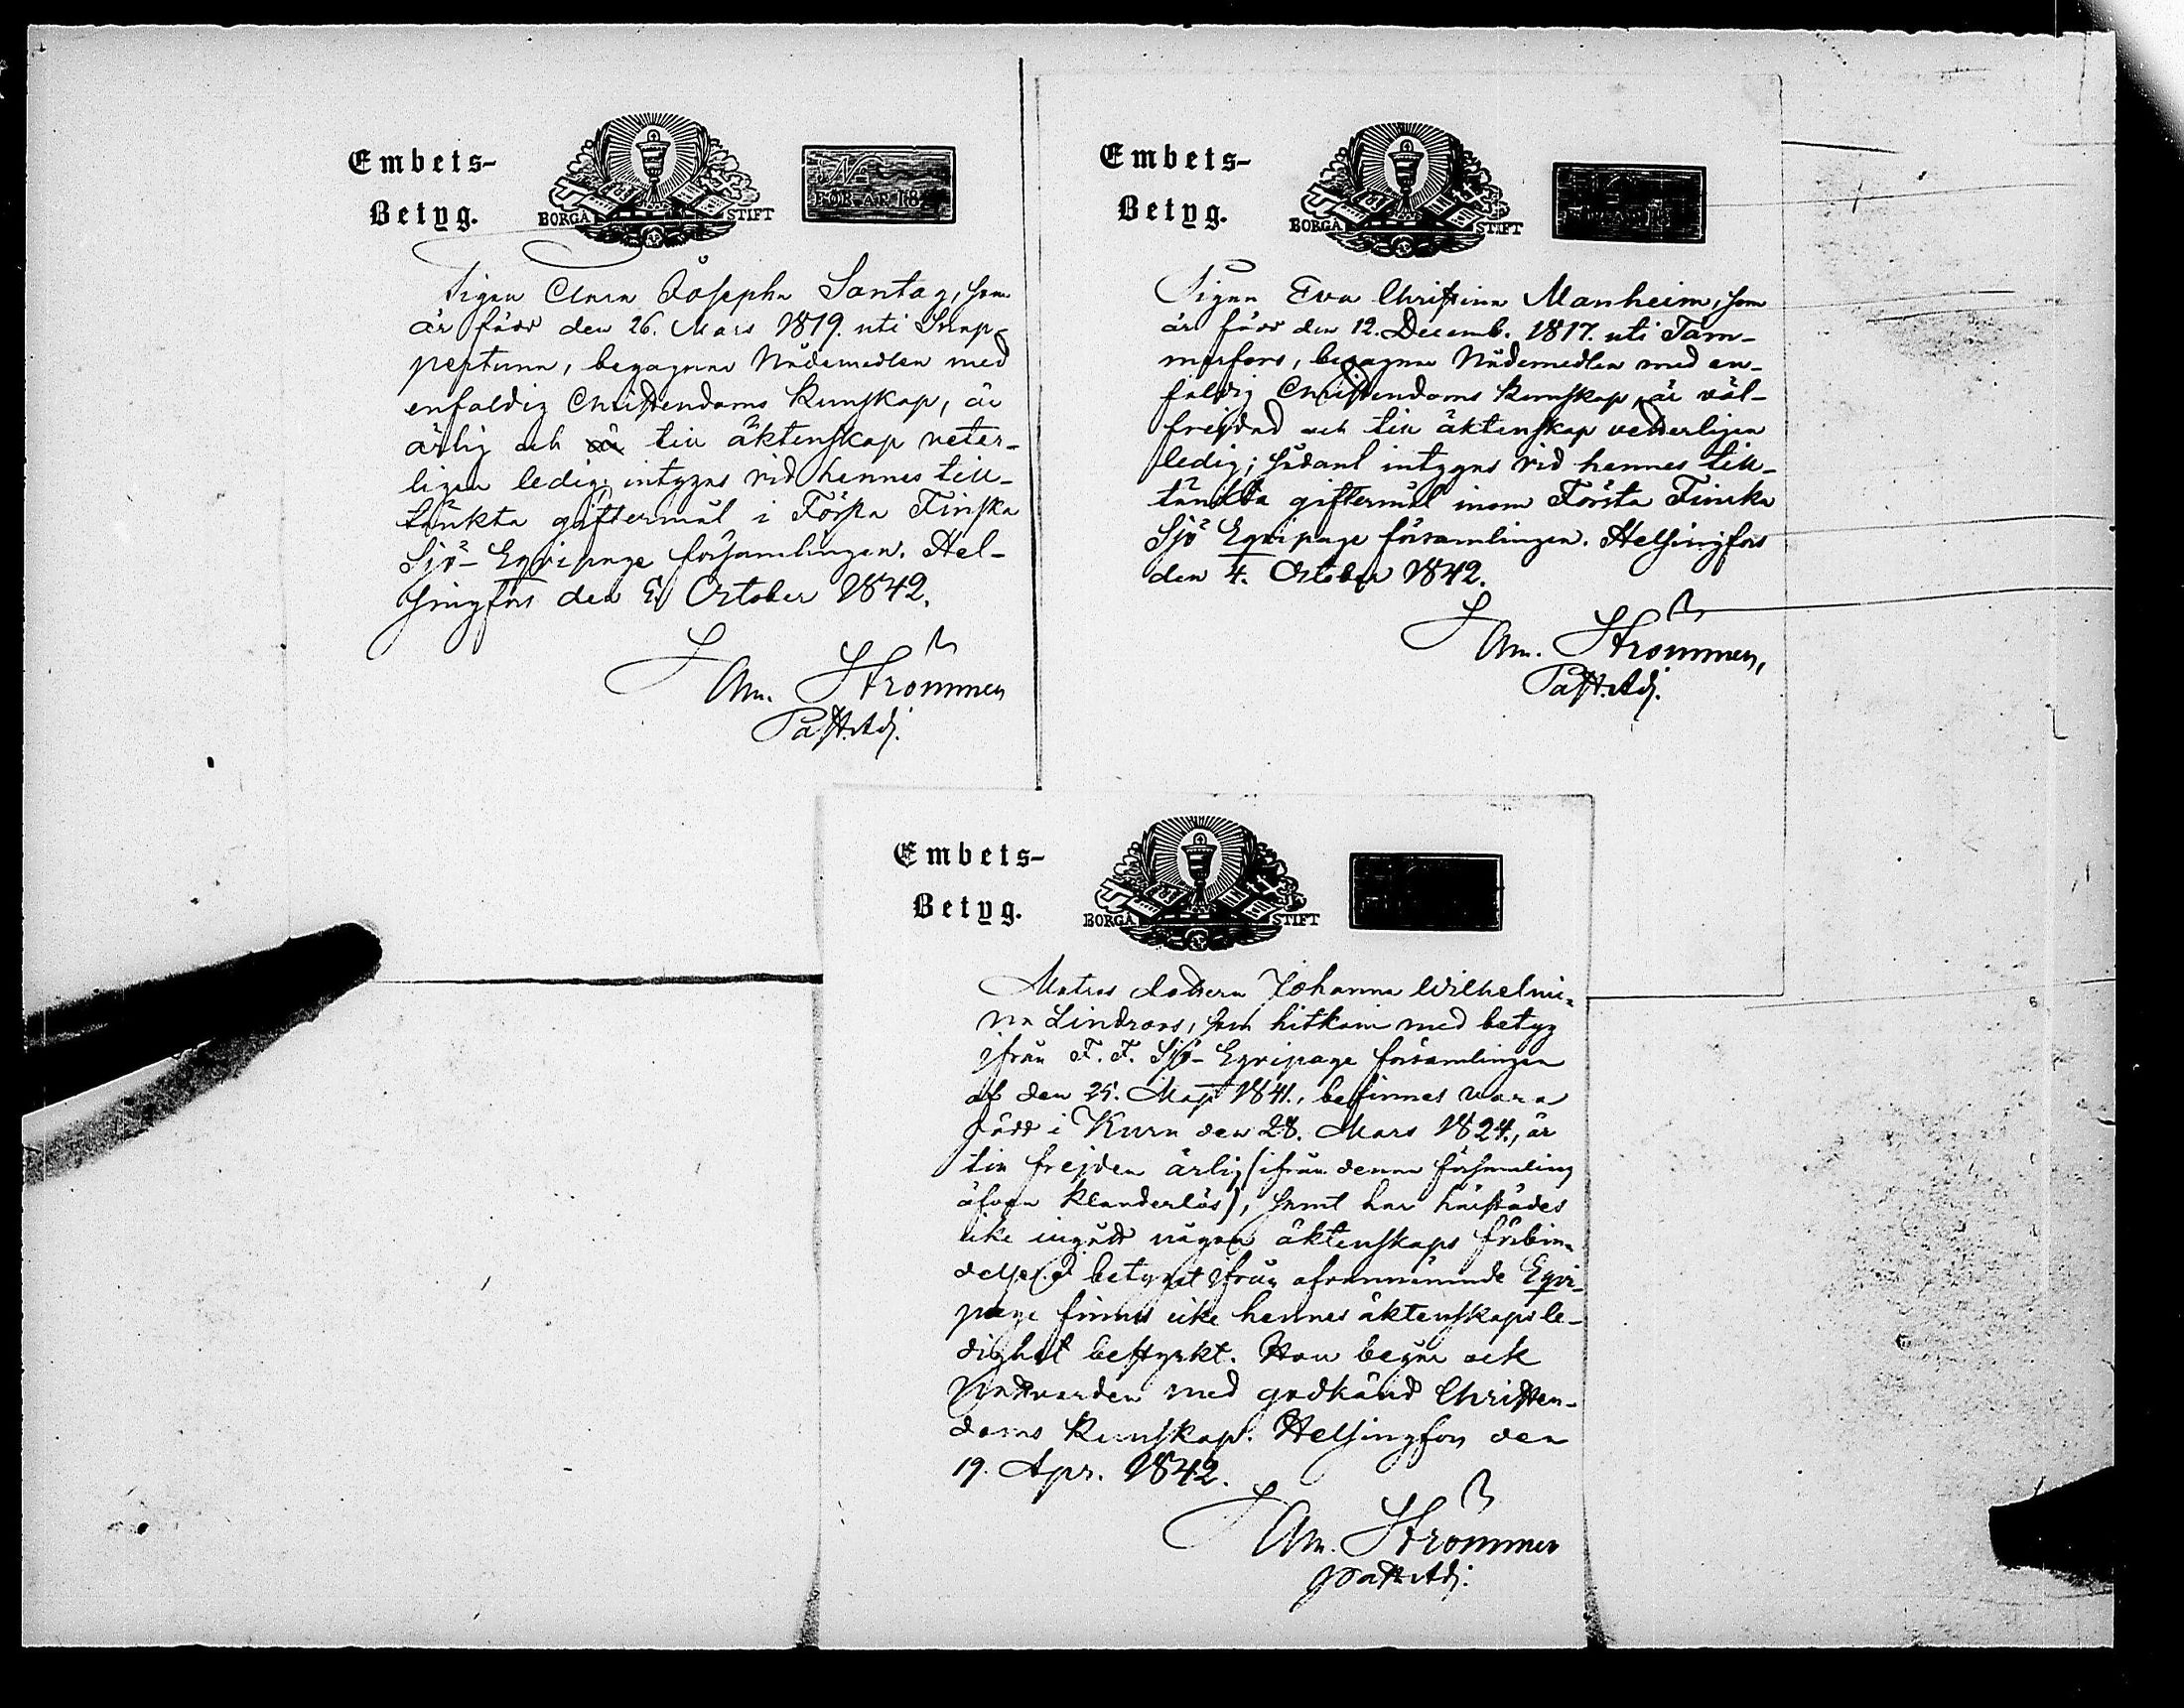 Embets-
Betyg.
BORGÅ STIFT
FÖR ÅR 18
Pigan Clara Josepha Sontag, som
är född den 26. Mars 1819. uti
begagnar Nådemedlen med
enfaldig Christendoms kunskap, är
ärlig och till äktenskap veter-
ligen ledig; intygas vid hennes till-
tänkta giftermål i Första Finska
Sjö-Eqvipage församlingen. Hel-
singfors den October 1842.
Am. Strömmer
Past. Adj.
Embets-
Betyg.
BORGÅ STIFT
Pigan Eva Christina Manheim, som
är född den 12. Decemb. 1817. uti Tam-
merfors, begagnar Nådemedlen med en-
faldig Christendoms kunskap, är väl-
frejdad och till äktenskap vetterligen
ledig; sådant intygas vid hennes till-
tänkta giftermål inom Första Finska
Sjö Eqvipage församlingen. Helsingfors
den 4. October 1842.
Am. Strömmer,
Past. Adj.
Embets-
Betyg.
BORGÅ STIFT
Matros dottern Johanna Wilhelmi-
na Lindroos, som hitkom med betyg
ifrån F. F. Sjö-Eqvipage församlingen
af den 25. Maji 1841., befinnes vara
född i Kuru den 28. Mars 1824., är
till frejden ärlig (ifrån denna församling
äfven klanderlös), samt har härstädes
icke ingått någon äktenskaps förbin-
delse. I betyget ifrån ofvannämnde Eqvi-
page finnes icke hennes äktenskapsle-
dighet bestyrkt. Hon begår ock
Nattvarden med godkänd Christen-
doms kunskap. Helsingfors den
19. Apr. 1842.
Am. Strömmer
Past. Adj.